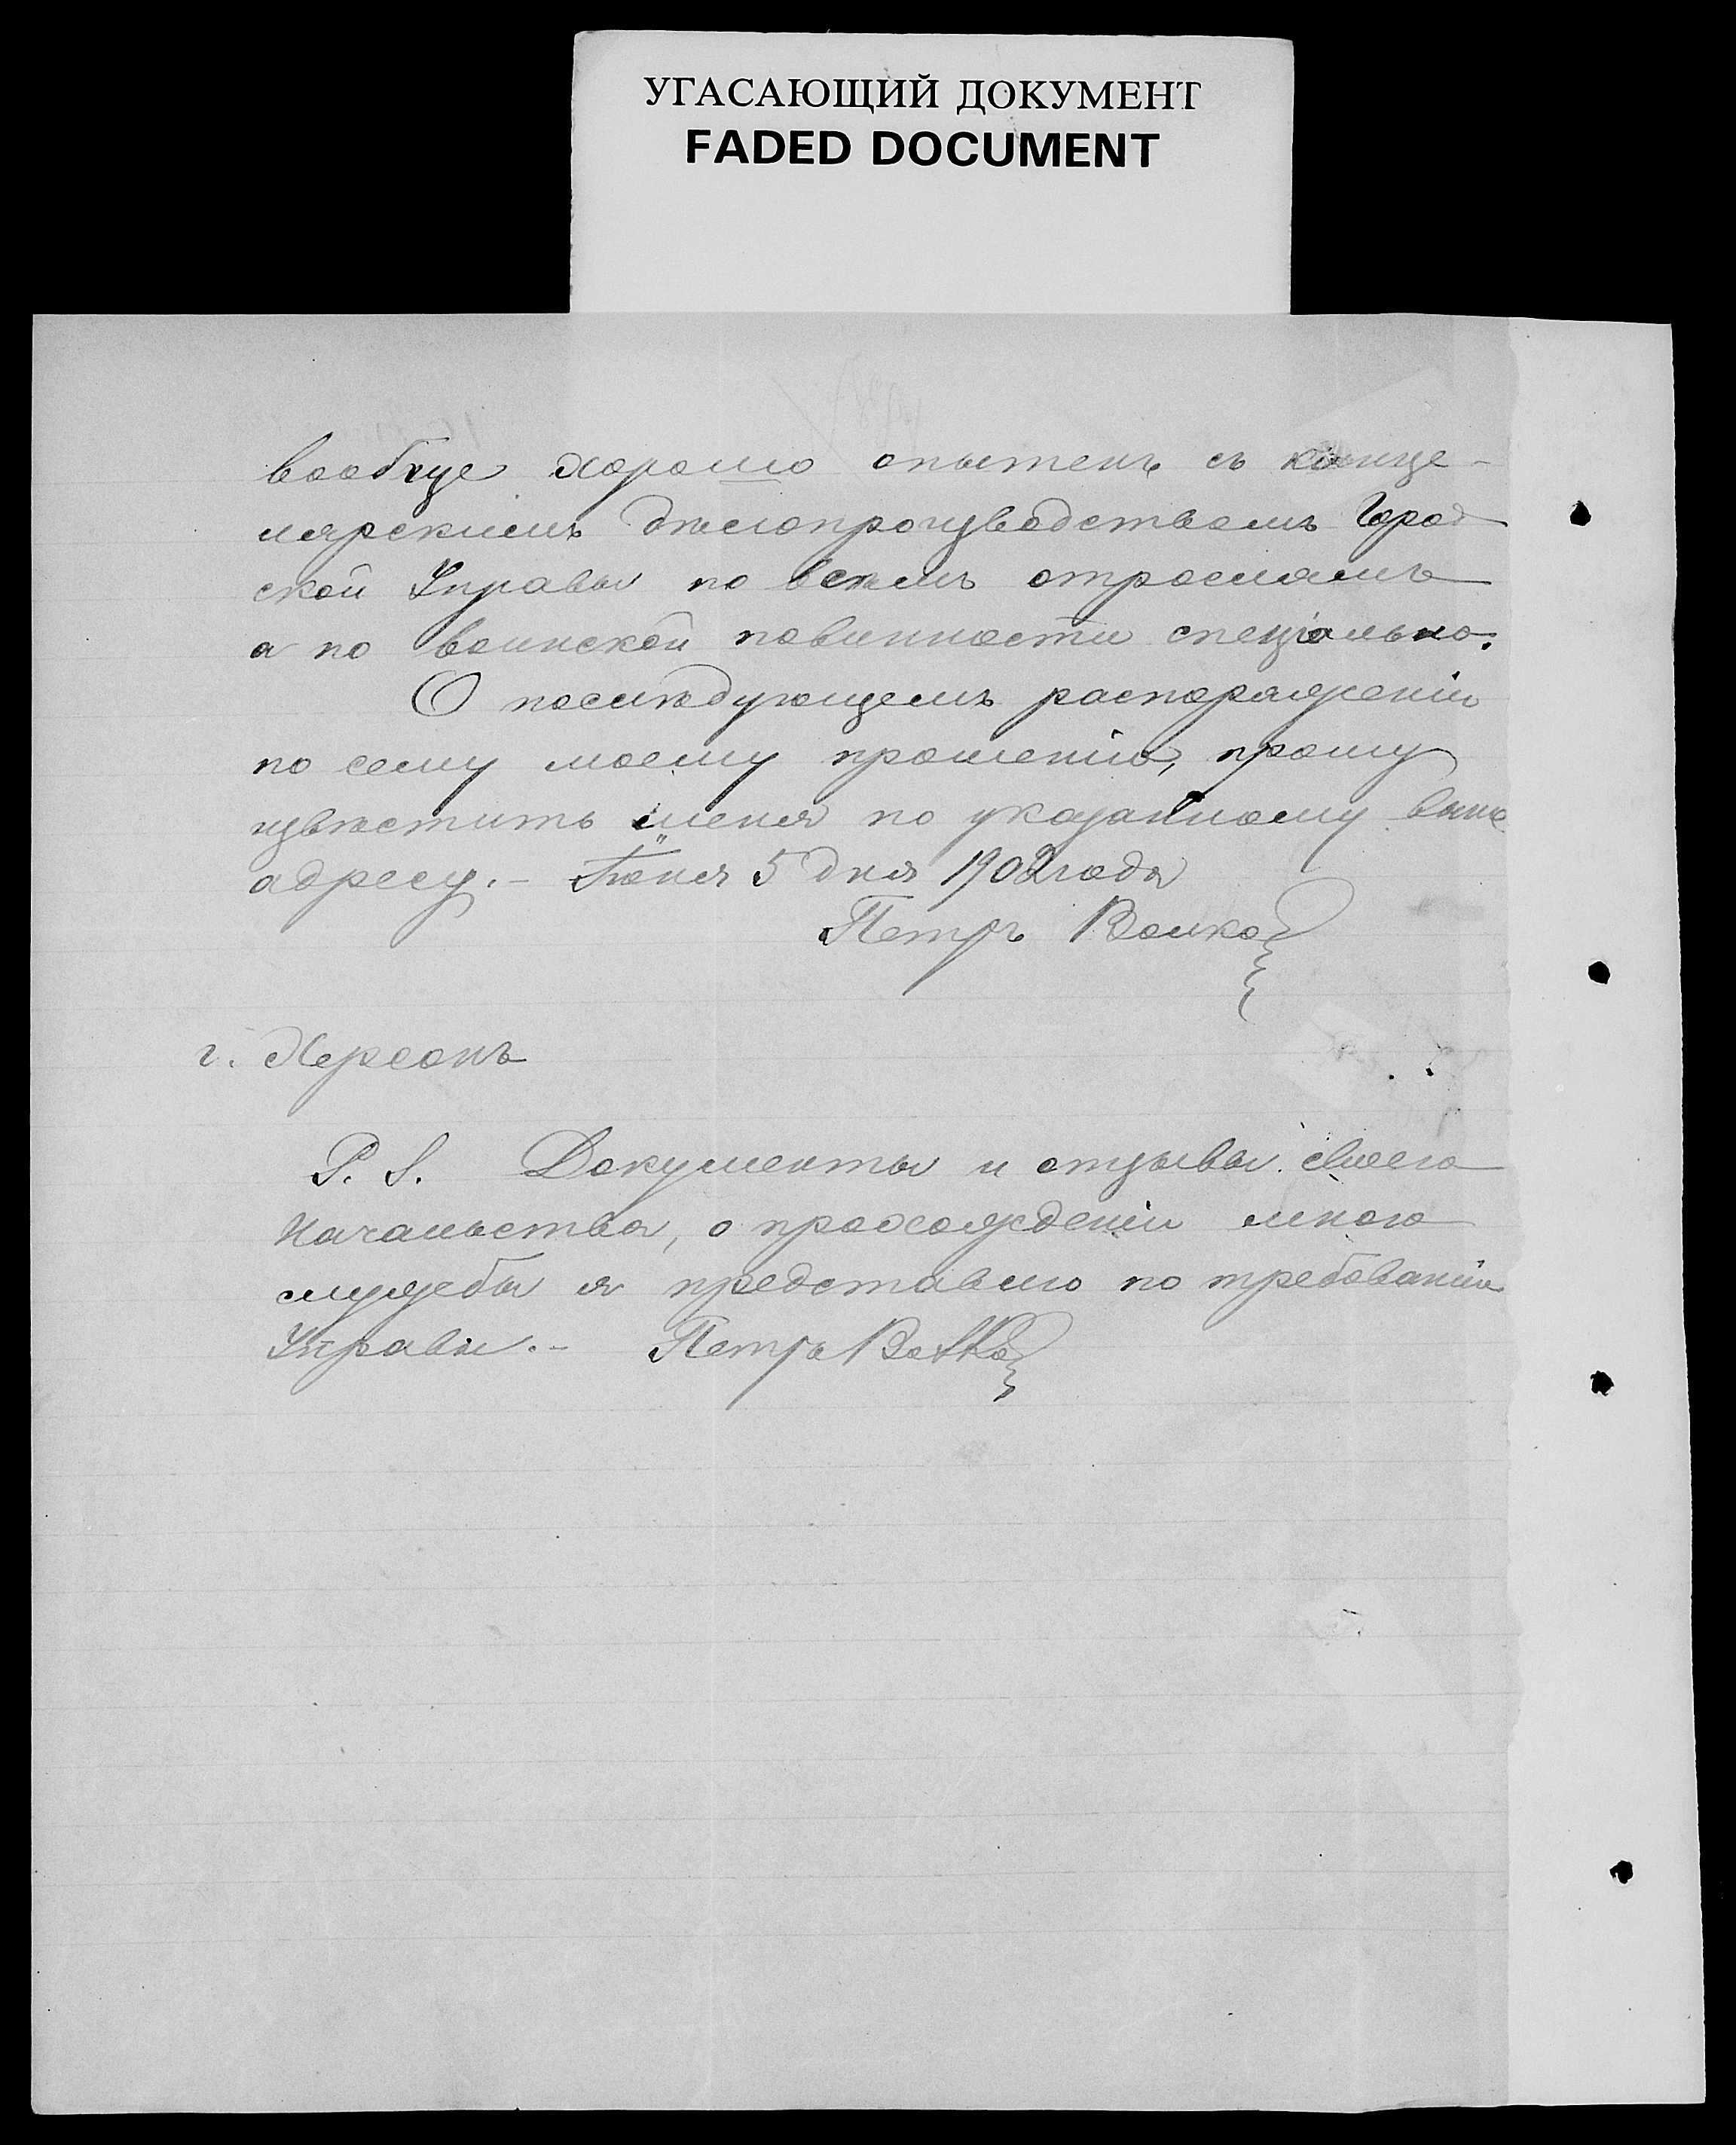 УГАСАЮЩИЙ ДОКУМЕНТ
FADED DOCUMENT
вообще хорошо опытенъ съ канце-
лярскимъ дѣлопроизводствомъ Город
ской Управы по всѣмъ отрослямъ
а по воинской повинности спеціально.
О послѣдующемъ распоряженіи
по сему моему прошенію, прошу
извѣстить меня по указанному выше
адресу.- Іюня 5 дня 1902 года
Петръ Волко
г. Херсонъ
P. S. Документы и отзывы своего
Начальства, о прохожденіи мною
службы я представлю по требованію
Управы.- Петръ Волко